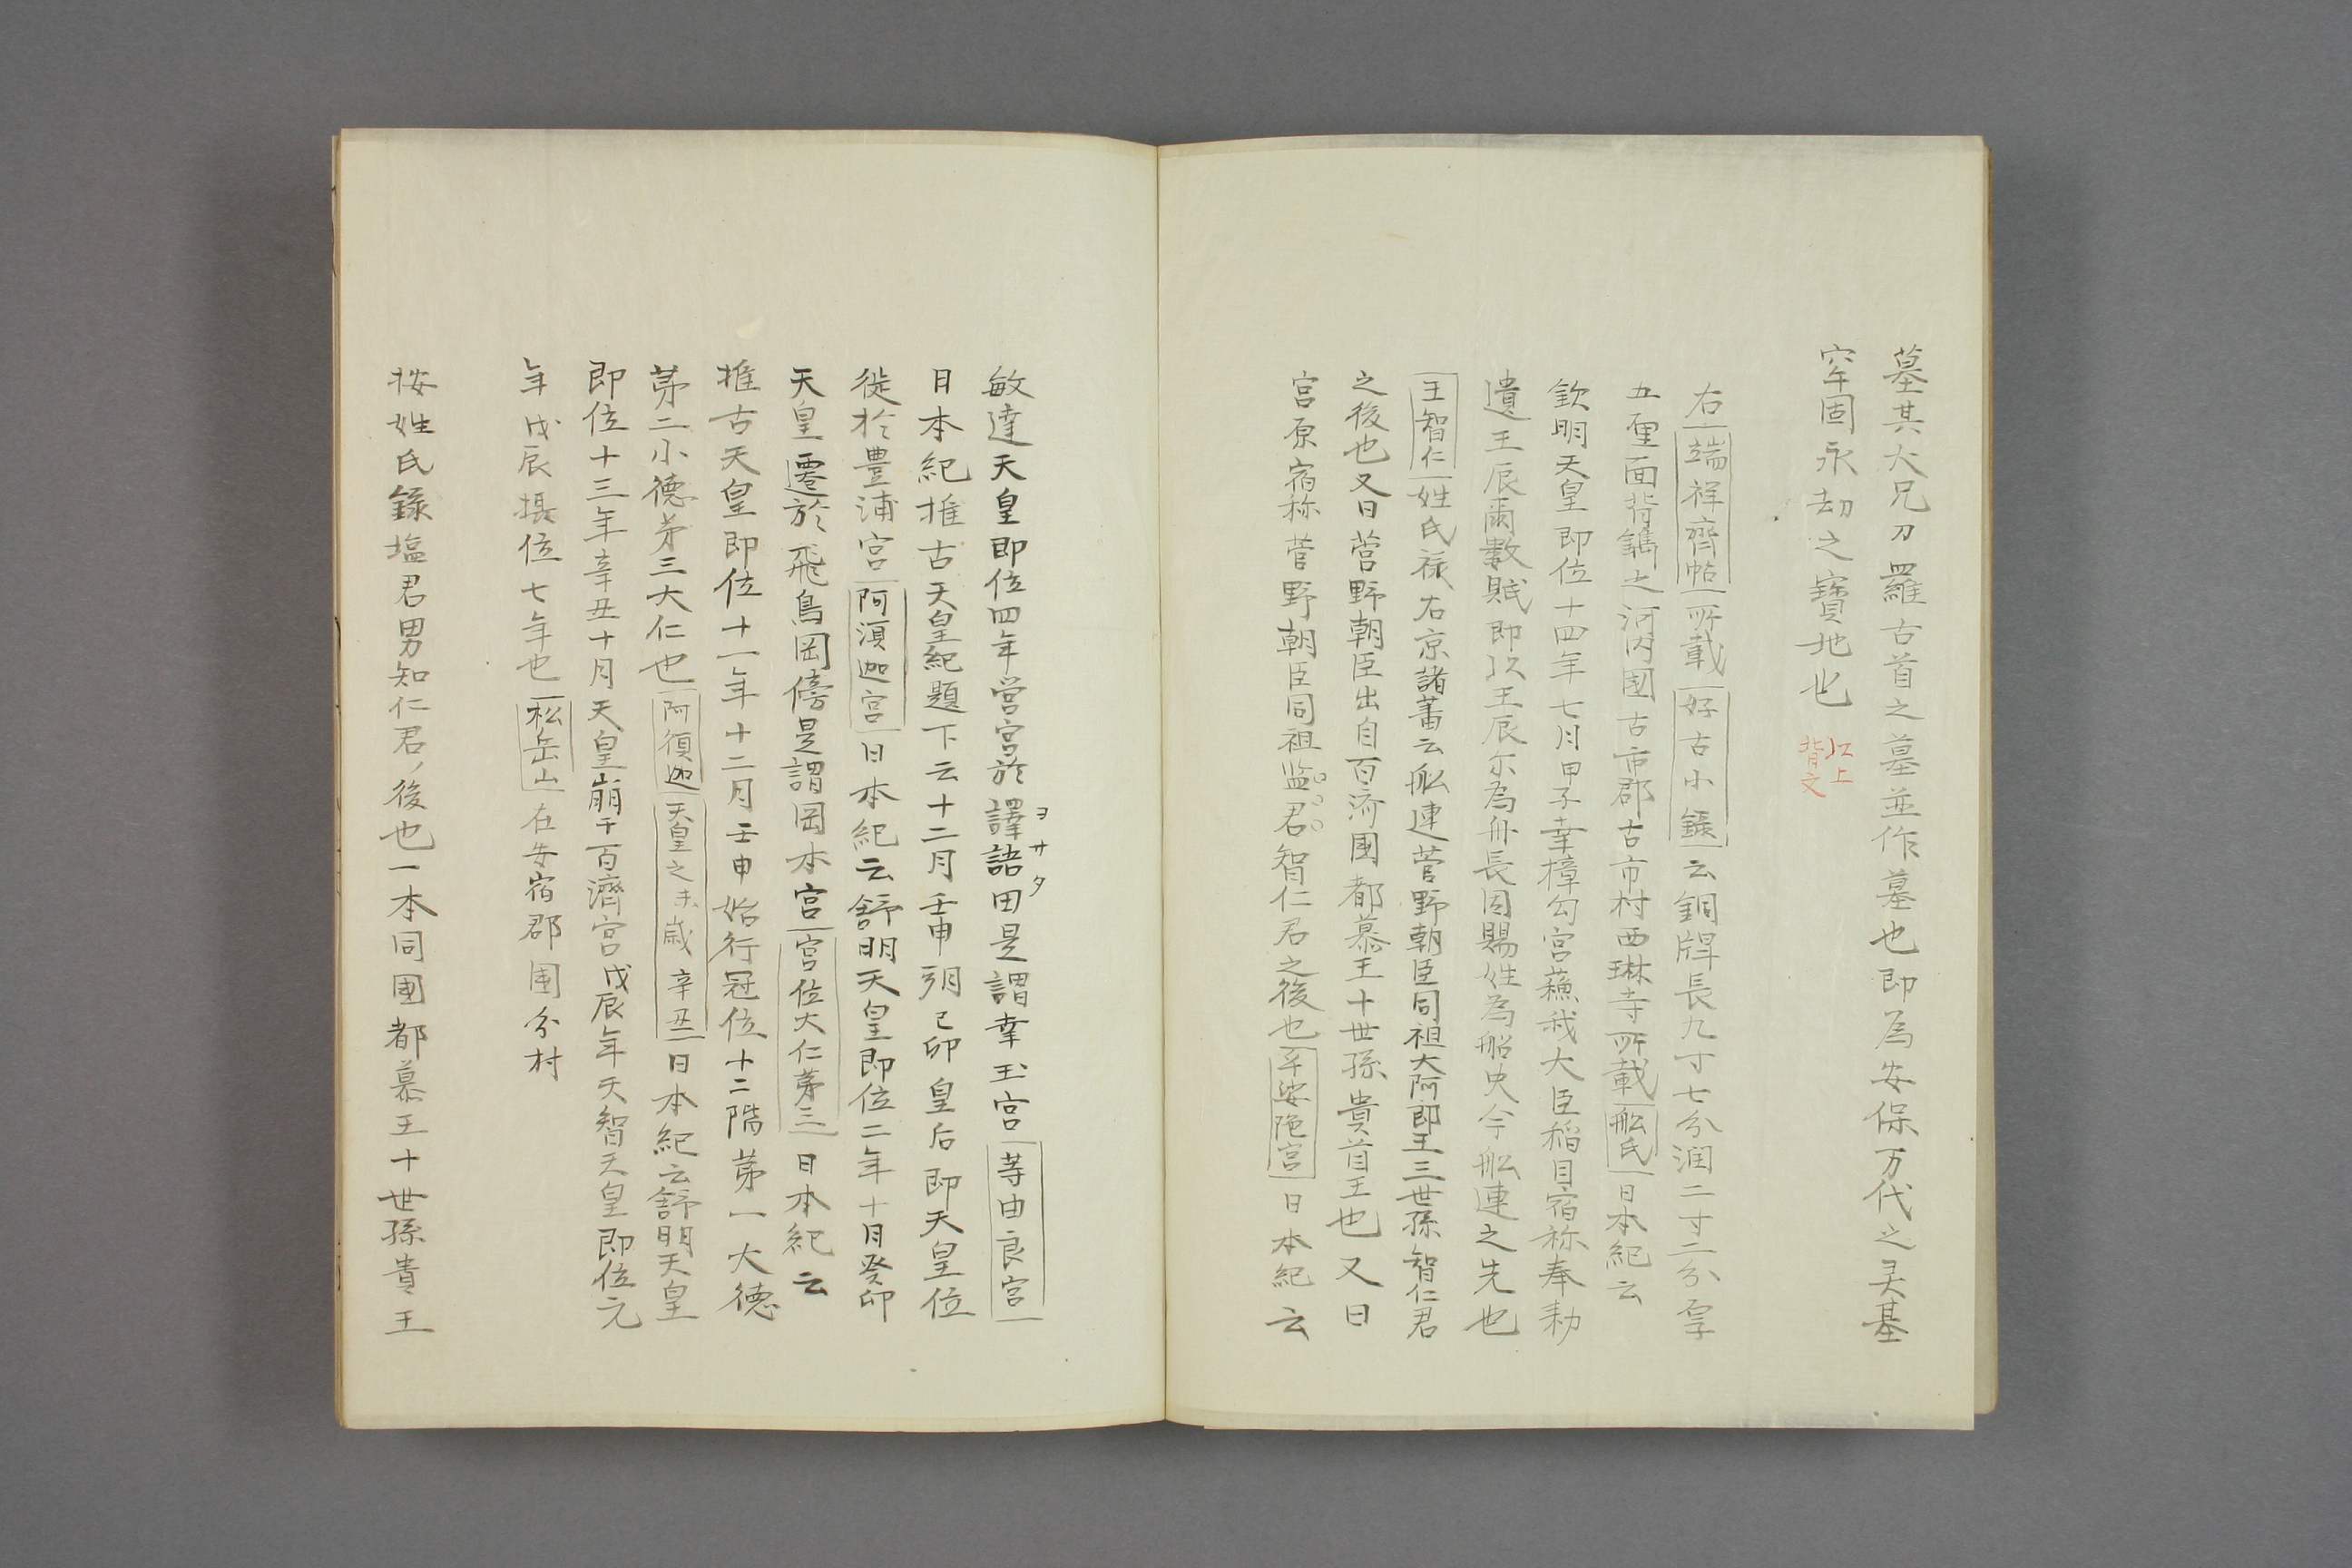 墓其大兄刀羅古首之墓並作墓也即為安保万代之灵基
牢固永劫之寶地也
以上
背文
右端祥齊帖所載好古小錄云銅牌長九寸七分濶二寸二分厚
五厘面背鐫之河内國古市郡古市村西琳寺所載舩氏日本紀云
欽明天皇即位十四年七月甲子幸樟勾宮蘓我大臣稲目宿祢奉勅
遣王辰爾數賦即以王辰尓為舟長因賜姓為船史今舩連之先也
王智仁姓氏祿右京諸蕃云舩連菅野朝臣同祖大阿郎王三世孫智仁君
之後也又曰菅野朝臣出自百濟國都慕王十世孫貴首王也又曰
宮原宿祢菅野朝臣同祖盐君智仁君之後也乎娑陁宮日本紀云
敏達天皇即位四年営宮於譯語田是謂幸玉宮等由良宮
ヲサタ
日本紀推古天皇紀題下云十二月壬申朔己卯皇后即天皇位
徙於豊浦宮阿湏迦宮日本紀云舒明天皇即位二年十月癸卯
天皇遷於飛鳥岡傍是謂岡本宮宮位大仁苐三日本紀云
推古天皇即位十一年十二月壬申始行冠位十二階苐一大徳
苐二小徳苐三大仁也阿須迦天皇之末歳辛丑日本紀云舒明天皇
即位十三年辛丑十月天皇崩于百濟宮戊辰年天智天皇即位元
年戊辰摂位七年也松岳山在安宿郡國分村
按姓氏録塩君男知仁君ノ後也一本同國都慕王十世孫貴王